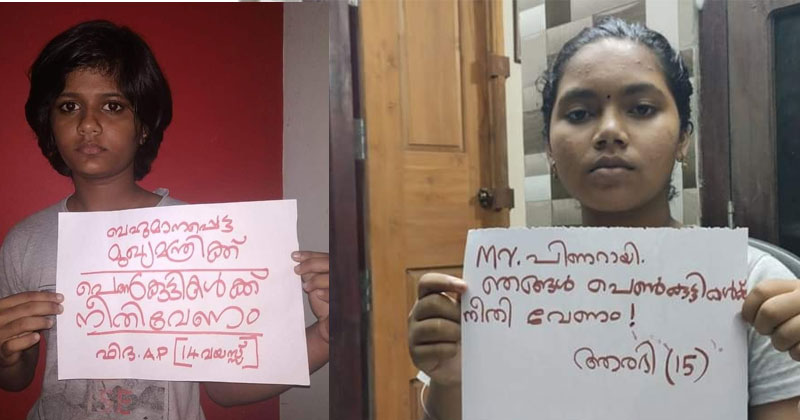 ബഹുമാനപ്പെട്ട
മുഖ്യമന്ത്രിക്ക്
പെൺകുട്ടികൾക്ക്
നീതിവേണം
ഫിദ. A.P [14 വയസ്സ്]
Mr. പിണറായി.
ഞങ്ങൾ പെൺകുട്ടികൾക്ക്
നീതി വേണം!
ആരതി (15)